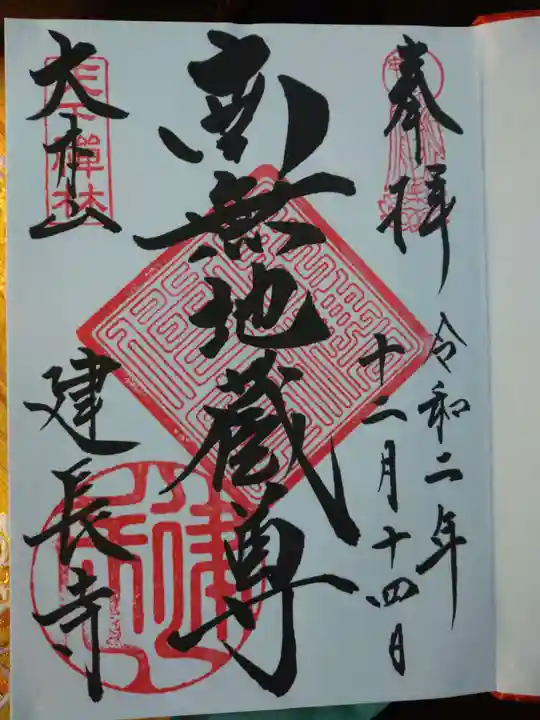 奉拝
令和二年
十二月十四日
南無地蔵尊
大本山
建長寺
天下禅林